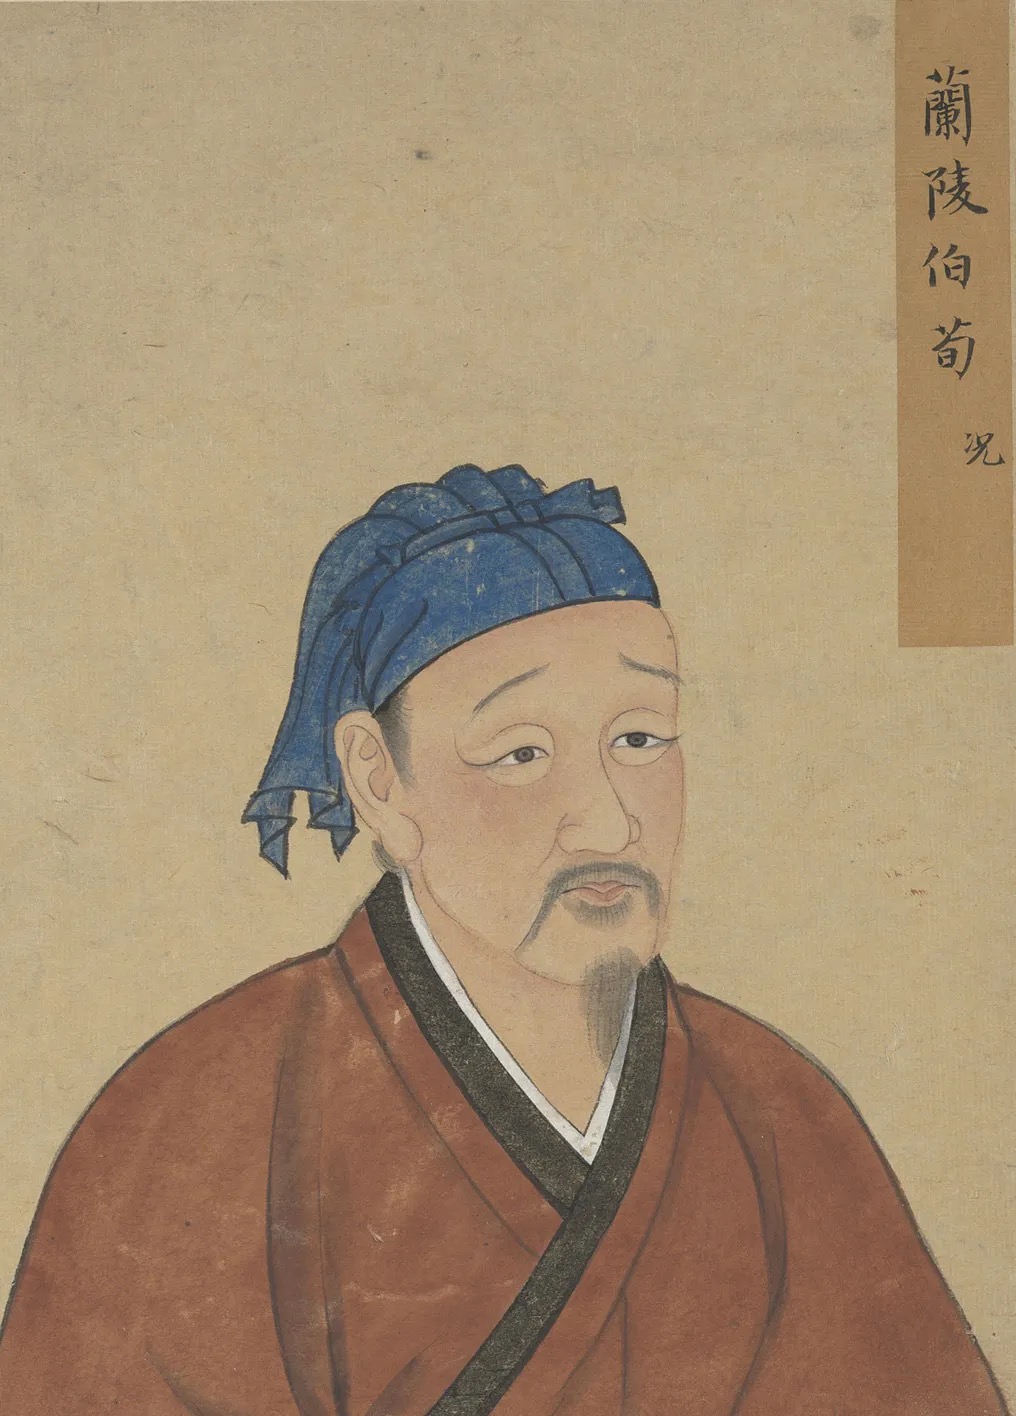 蘭陵伯荀况